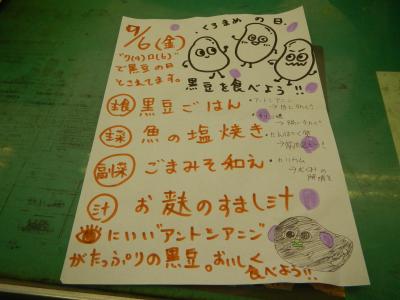 9/6(金)
"9(く)ロ(6)"
で黒豆の日
ときてます。
・くろまめの日・
黒豆を食べよう!!
主食 黒豆ごはん
主菜 魚の塩焼き
副菜 ごまみそ和え
汁 お麸のすまし汁
・アントシアニン
・たんぱく質
・カリウム
→むくみの
解消
にいい"アントシアニン"
がたっぷりの黒豆。おいしく
食べよう!!